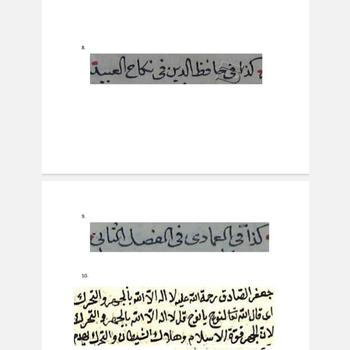 8.
كذا في حافظ الدين في نكاح العبيد
9.
كذا في العمادى في الفصل الثاني
10.
جعفر الصادق رحمة الله عليه لا اله الا الله بالجهر والتحرك
اى قال الله تعا لنوح يا نوح قل لا اله الا الله بالجهر والتحرك
لان الجهر قوة الاسلام وهلاك الشيطان والتحرك يهدم